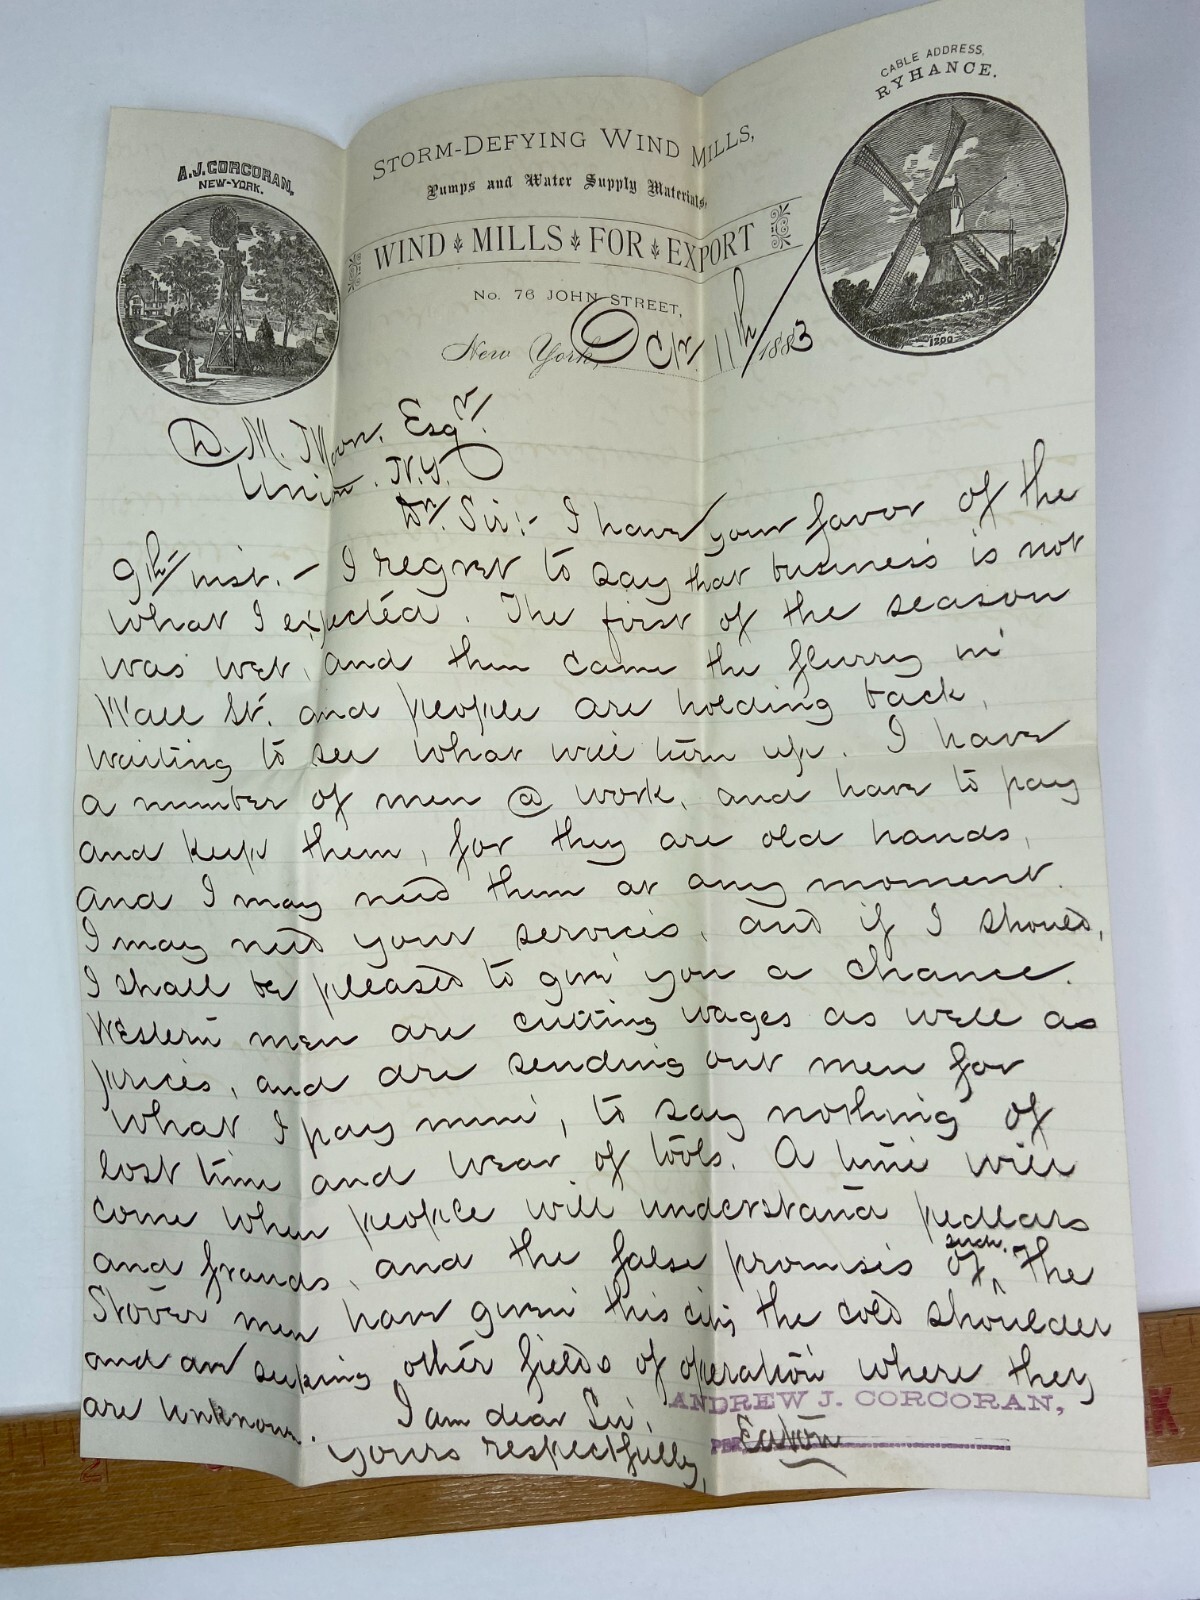 A.J. CORCORAN,
NEW-YORK.
STORM-DEFYING WIND MILLS,
Pumps and Water Supply Materials,
WIND MILLS FOR EXPORT
No. 76 JOHN STREET,
New York, Oct. 11th 1883
CABLE ADDRESS,
RYHANCE.
1200
D. M. Moon, Esqr.
Union, N.Y.
Dr. Sir:- I have your favor of the
9th inst. - I regret to say that business is not
what I expected. The first of the season
was wet, and then came the flurry in
Wall St. and people are holding back,
waiting to see what will turn up. I have
a number of men @ work, and have to pay
and keep them, for they are old hands,
and I may need them at any moment.
I may need your services, and if I should,
I shall be pleased to give you a chance.
Western men are cutting wages as well as
prices, and are sending out men for
what I pay mine, to say nothing of
lost time and wear of tools. A time will
come when people will understand pedlars
and frauds, and the false promises of such. - The
Stover men have given this city the cold shoulder
and are seeking other fields of operation where they
are unknown. I am dear Sir,
yours respectfully,
ANDREW J. CORCORAN,
PER Eaton